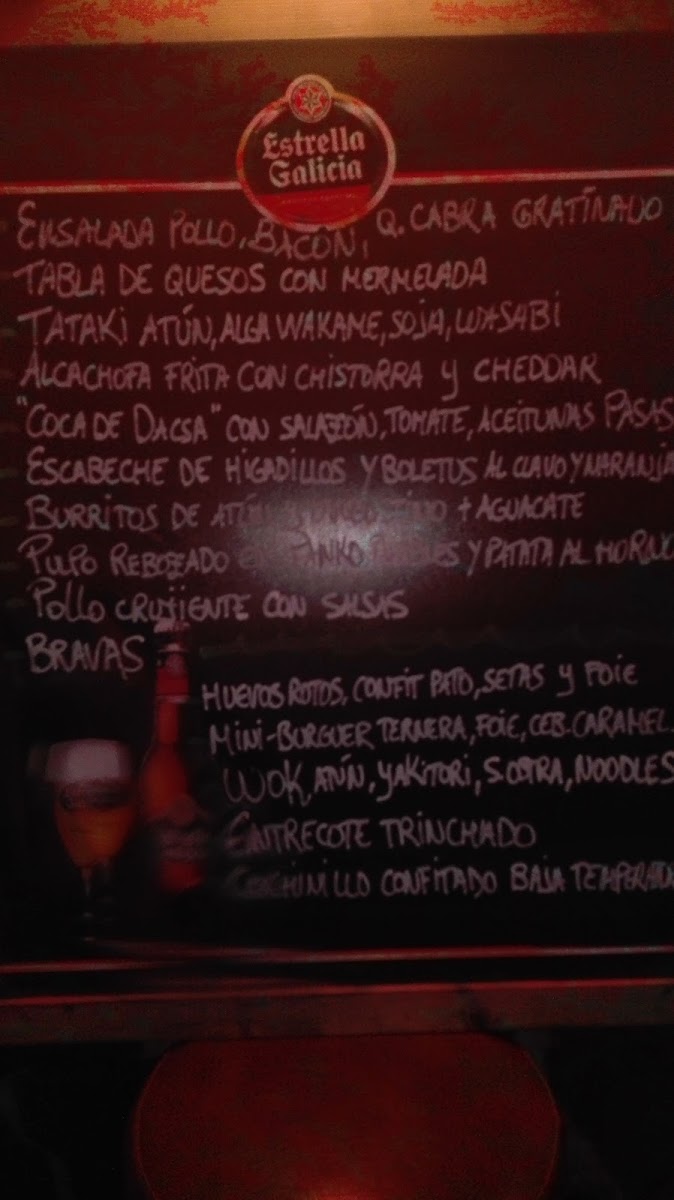 Estrella
Galicia
ENSALADA POLLO, BACON, Q. CABRA GRATINADO
TABLA DE QUESOS CON MERMELADA
TATAKI ATÚN, ALGA WAKAME, SOJA, WASABI
ALCACHOFA FRITA CON CHISTORRA Y CHEDDAR
"COCA DE DACSA" CON SALAZÓN, TOMATE, ACEITUNAS PASAS
ESCABECHE DE HIGADILLOS Y BOLETUS AL CLAVO Y NARANJA
BURRITOS DE ATÚN + AGUACATE
PULPO REBOZADO PANKO Y PATATA AL HORNO
POLLO CRUJIENTE CON SALSAS
BRAVAS
HUEVOS ROTOS, CONFIT PATO, SETAS Y FOIE
MINI-BURGUER TERNERA, FOIE, CEB. CARAMEL.
WOK, ATÚN, YAKITORI, S. OSTRA, NOODLES
ENTRECOTE TRINCHADO
COCHINILLO CONFITADO BAJA